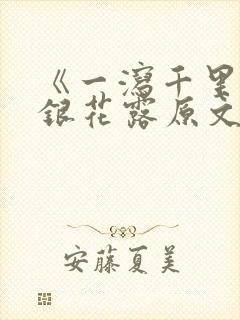 《一瀉千里
銀花露原文
安藤夏美